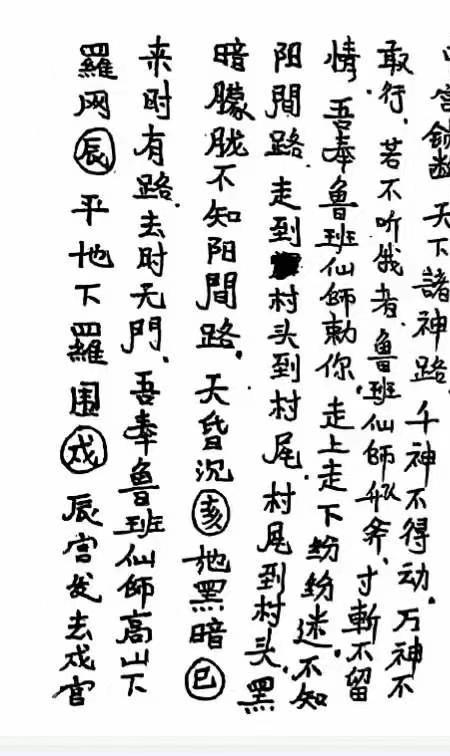 宫锁天下諸神路.千神不得动.万神不
敢行.若不听俄者.鲁班仙師斧,寸斬不留
情.吾奉魯班仙師勅你.走上走下纷纷迷.不知
阳間路.走到村头到村尾.村尾到村头.黑
暗朦胧不知阳間路.天昏沉亥地黑暗巳
来时有路.去时无門.吾奉魯班仙師高山下
羅网辰平地下羅围戌辰宫发去戌宫